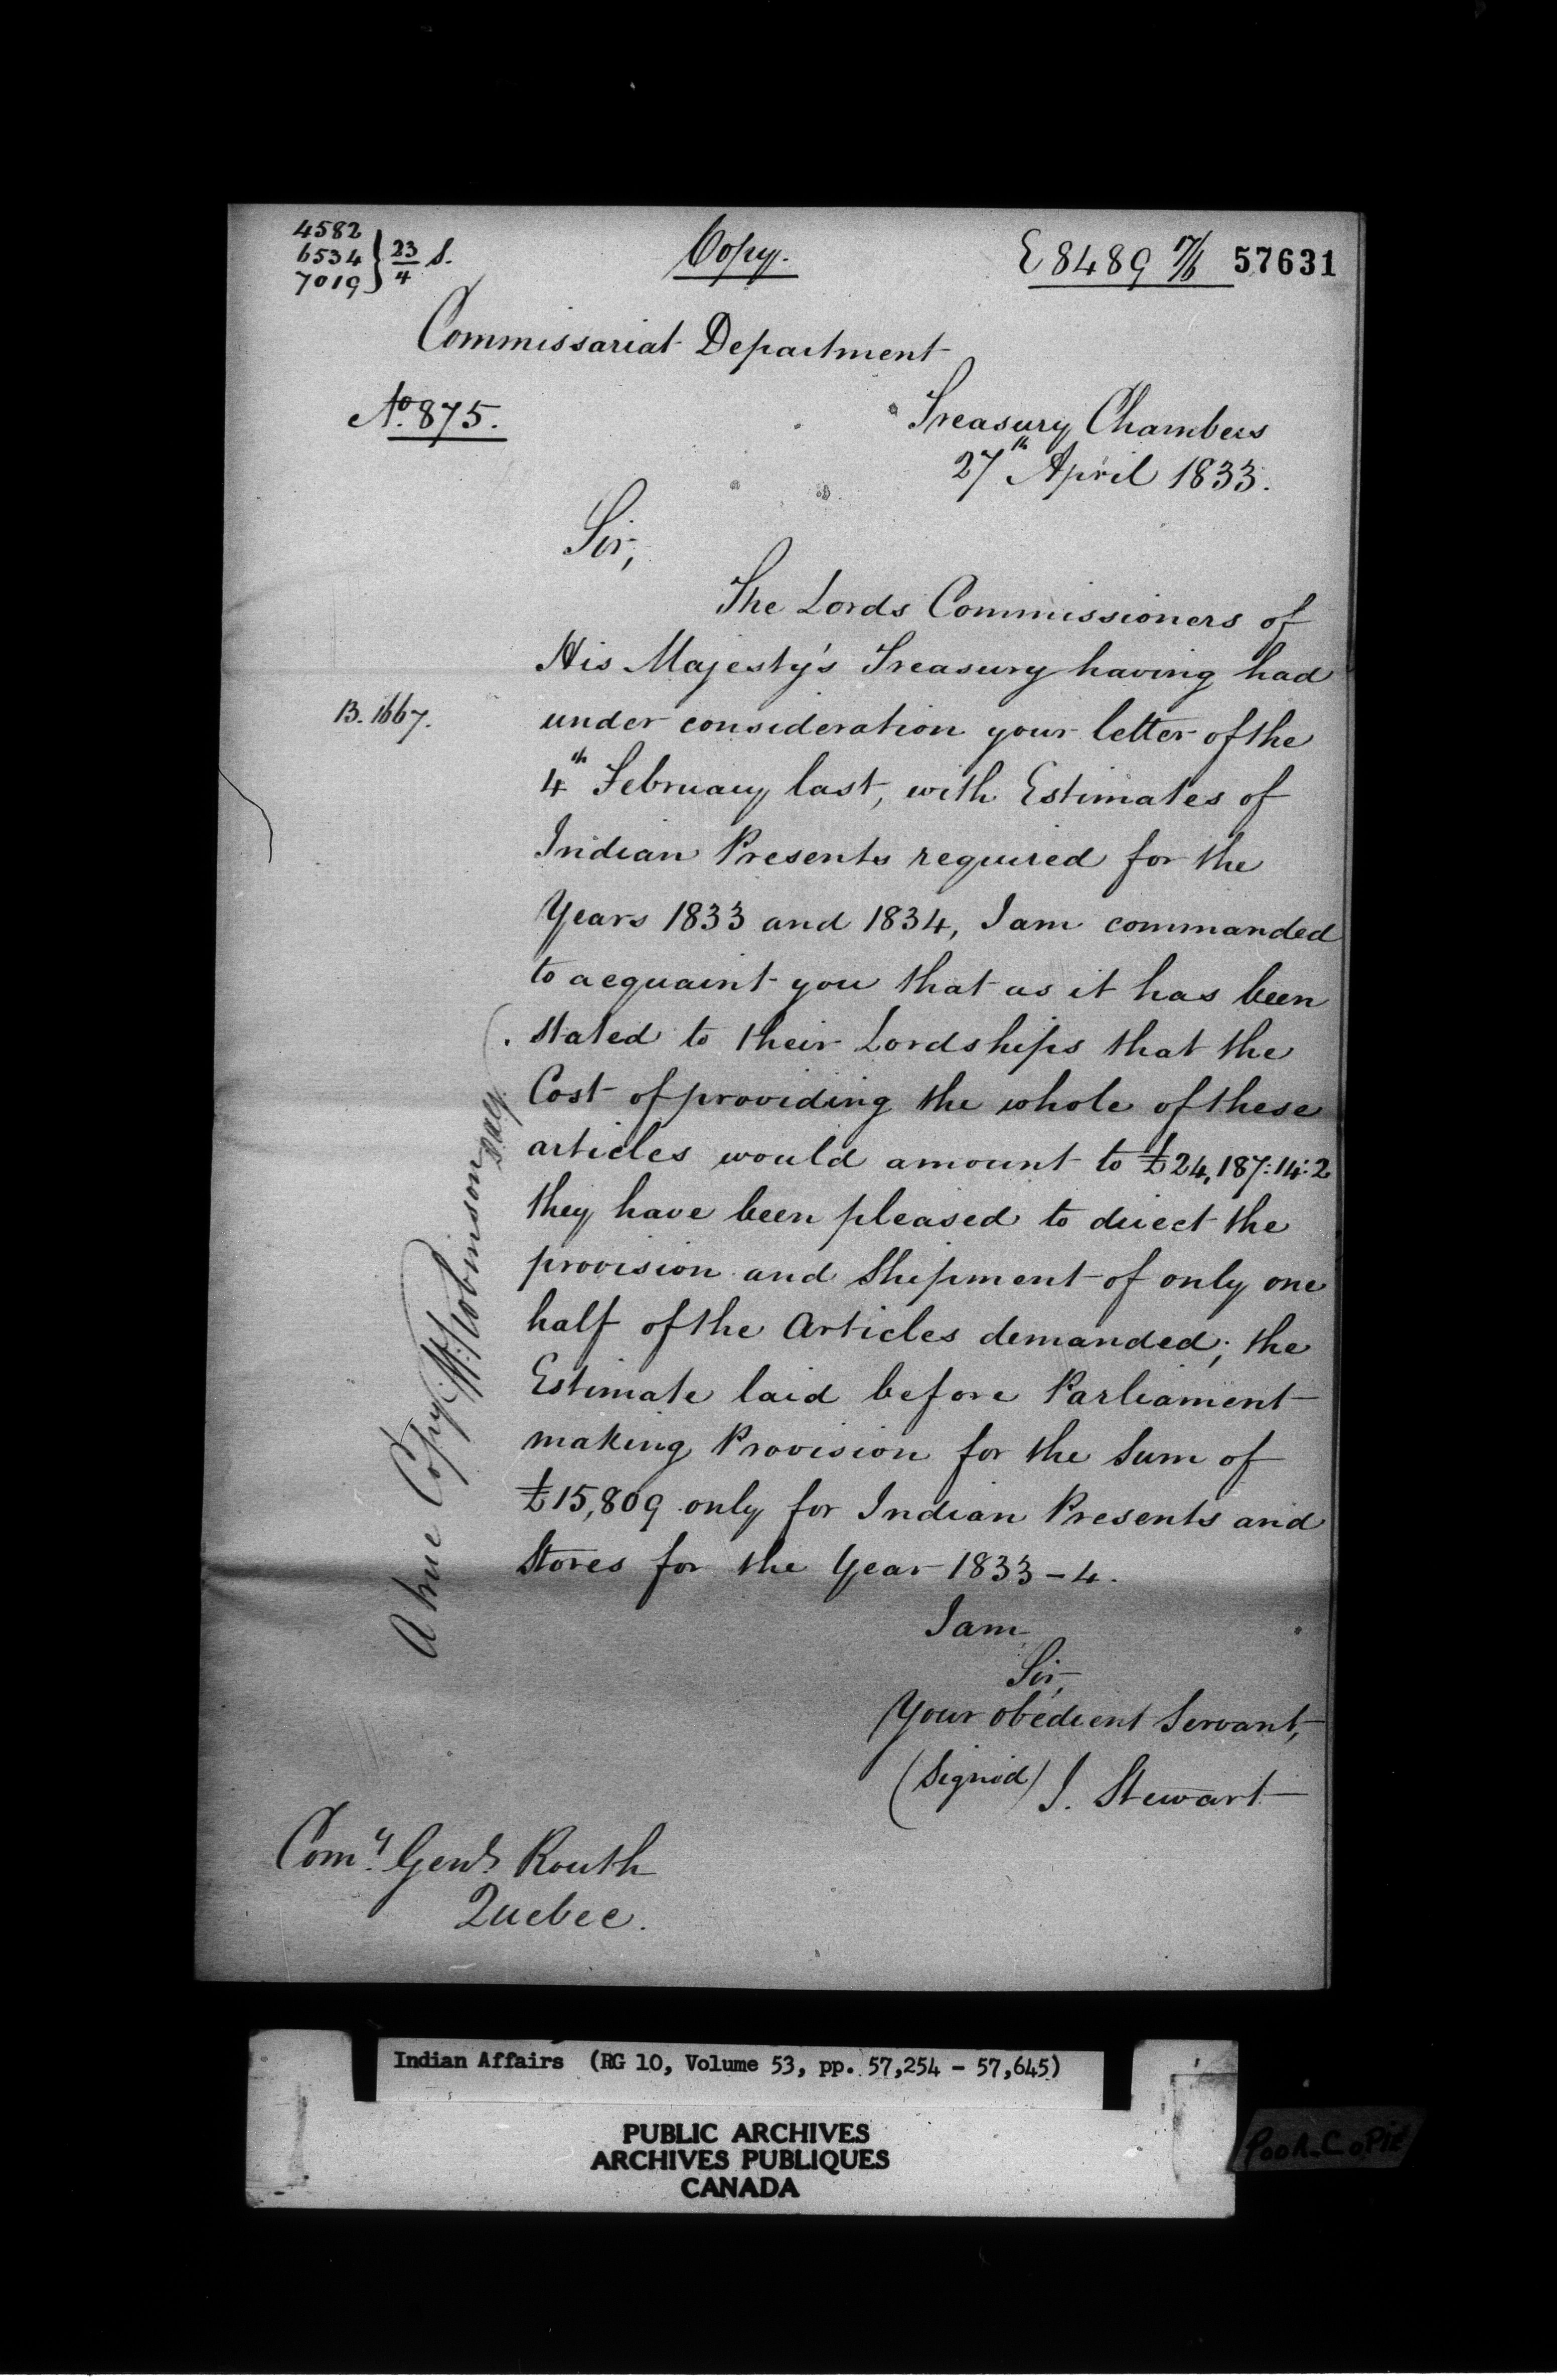 4582
6534 } 23/4 S.
7019
Copy.
E 8489 17/6 57631
Commissariat Department
No. 875.
Treasury Chambers
27th April 1833.
Sir,
The Lords Commissioners of
His Majesty's Treasury having had
B. 1667.
under consideration your letter of the
4th February last, with Estimates of
Indian Presents required for the
Years 1833 and 1834, I am commanded
to acquaint you that as it has been
stated to their Lordships that the
Cost of providing the whole of these
articles would amount to £24,187:14:2
they have been pleased to direct the
provision and Shipment of only one
half of the Articles demanded; the
Estimate laid before Parliament
making Provision for the Sum of
£15,809 only for Indian Presents and
Stores for the Year 1833-4.
I am
Sir,
Your obedient Servant,
(Signed) J. Stewart
A true Copy Robinson
Comy. Genl. Routh
Quebec.
Indian Affairs (RG 10, Volume 53, pp. 57,254 - 57,645)
PUBLIC ARCHIVES
ARCHIVES PUBLIQUES
CANADA
POOR COPIE